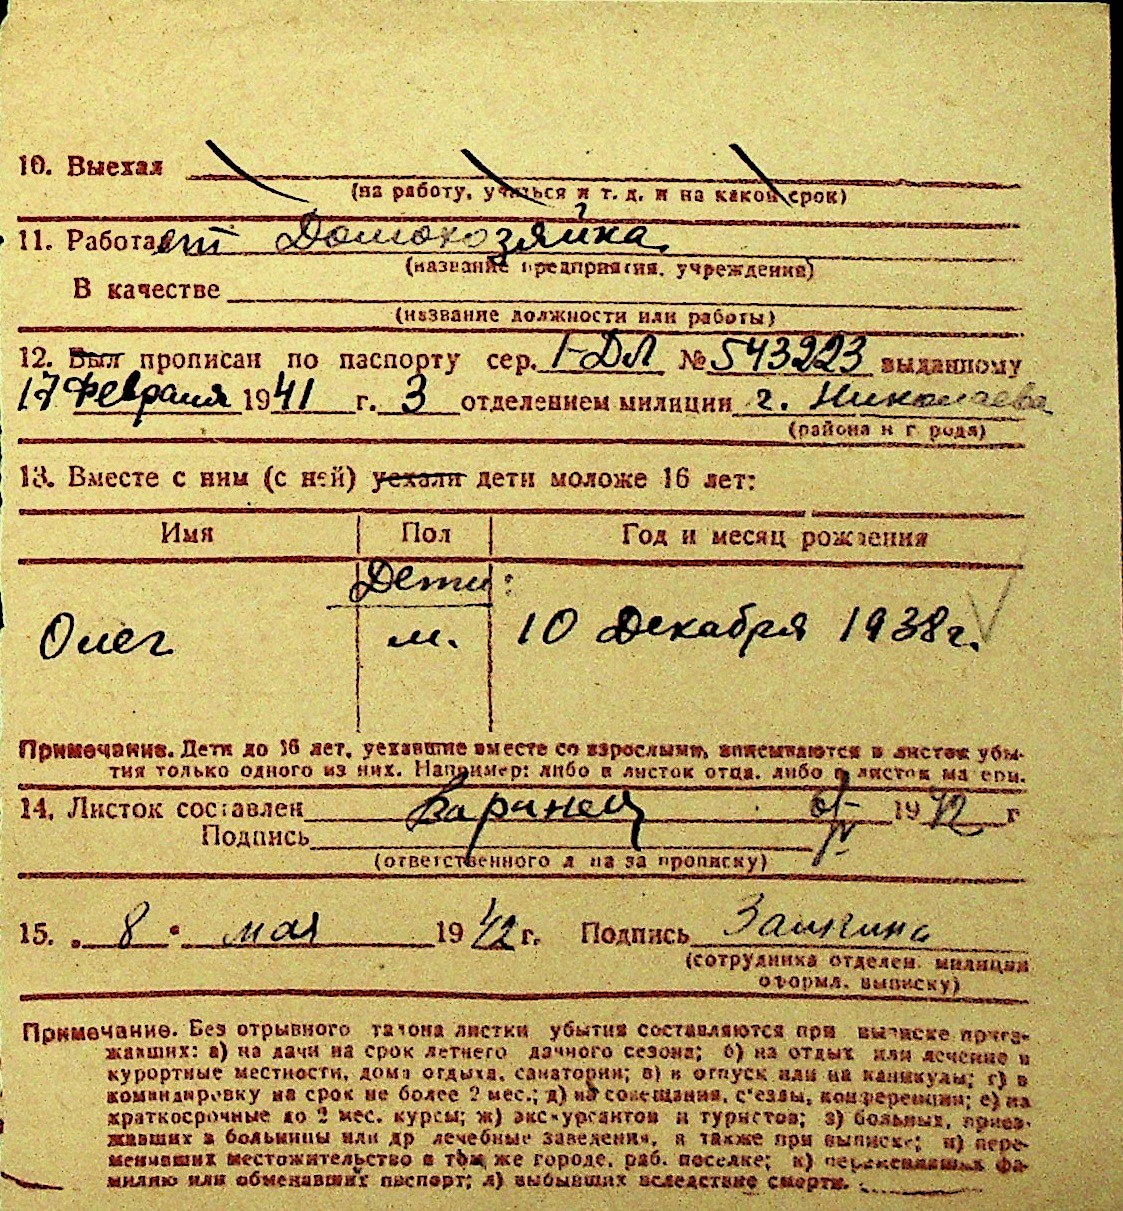 10. Выехал
(на работу, учиться и т. д. и на какой срок)
11. Работает Домохозяйка
(название предприятия, учреждения)
В качестве
(название должности или работы)
12. Был прописан по паспорту сер. I-ДЛ № 543223 выданному
17 февраля 1941 г. 3 отделением милиции г. Николаева
(района и города)
13. Вместе с ним (с ней) уехали дети моложе 16 лет:
Имя Пол Год и месяц рождения
Дети:
Олег м. 10 Декабря 1938 г.
Примечание. Дети до 16 лет, уехавшие вместе со взрослыми, вписываются в листок убы-
тия только одного из них. Например: либо в листок отца, либо в листок матери.
14. Листок составлен 1942 г
Подпись
(ответственного лица за прописку)
15. „ 8 " мая 1942 г. Подпись
(сотрудника отделен. милиции
оформл. выписку)
Примечание. Без отрывного талона листки убытия составляются при выписке приез-
жавших: а) на дачи на срок летнего дачного сезона; б) на отдых или лечение в
курортные местности, дома отдыха, санатории; в) в отпуск или на каникулы; г) в
командировку на срок не более 2 мес.; д) на совещания, с'езды, конференции; е) на
краткосрочные до 2 мес. курсы; ж) экскурсантов и туристов; з) больных, приез-
жавших в больницы или др лечебные заведения, а также при выписке; и) пере-
менивших местожительство в том же городе, раб. поселке; к) переменивших фа-
милию или обменявших паспорт; л) выбывших вследствие смерти.